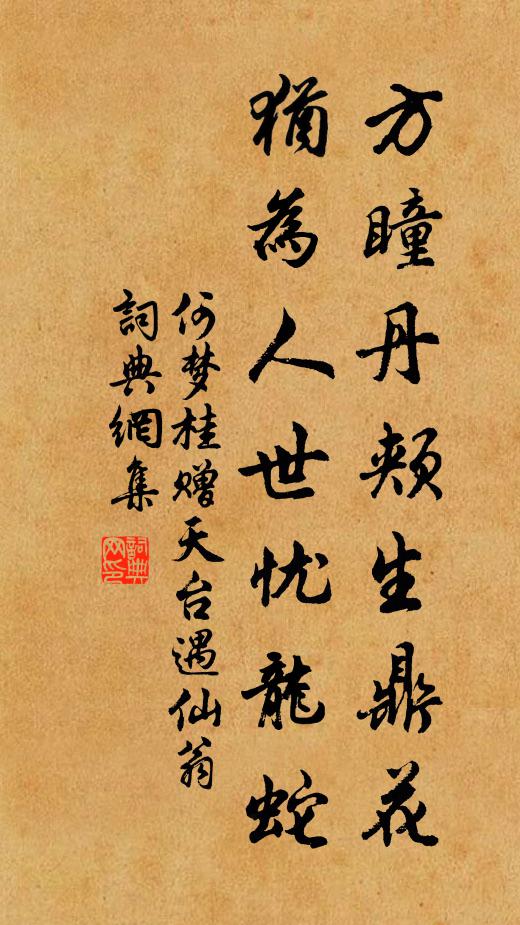 方瞳丹頰生鼎花
猶為人世忧龍蛇
何梦桂赠天台遇仙翁
詞典網集
詞典
网印